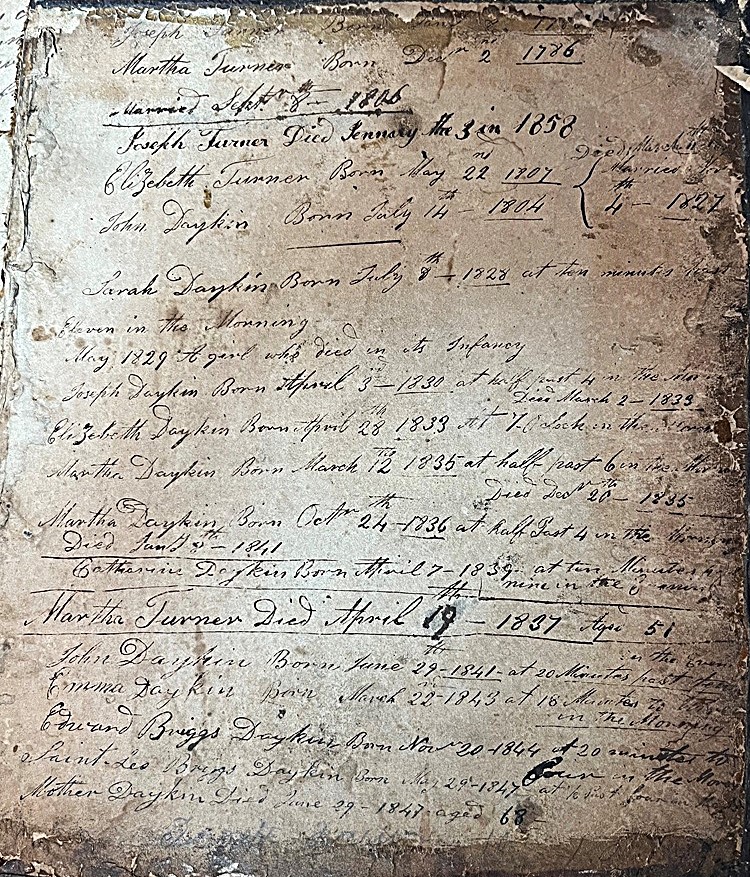 Joseph Turner Born
Martha Turner Born Decr 2 1786
Married Septr 8th — 1806
Joseph Turner Died Jennary the 3 in 1858
Elizebeth Turner Born May 22nd 1807 { Died March
Married
John Daykin Born July 14th — 1804 4th — 1827
Sarah Daykin Born July 8th — 1828 at ten minuts past
Eleven in the Morning
May 1829 A girl who died in its Infancy
Joseph Daykin Born April 3d — 1830 at half past 4 in the Mor
Died March 2 — 1833
Elizebeth Daykin Born April 28th 1833 At 7 O Clock in the
Martha Daykin Born March 12th 1835 at half past 6 in the
Died Decr 20th — 1835
Martha Daykin Born Octr 24th — 1836 at half Past 4 in the Morning
Died Jany 5th — 1841
Catherine Daykin Born April 7 — 1839 at ten Minutes
nine in the
Martha Turner Died April 19th — 1837 Aged 51
in the
John Daykin Born June 29th — 1841 — at 20 Minutes past
Emma Daykin Born March 22 — 1843 at 18 Minutes to
in the Morning
Edward Briggs Daykin Born Novr 20 — 1844 at 20 minutes to
four in the Mor
Saint Leo Briggs Daykin Born May 29 — 1847 at past four in the
Mother Daykin Died June 29 — 1847 aged 68 —